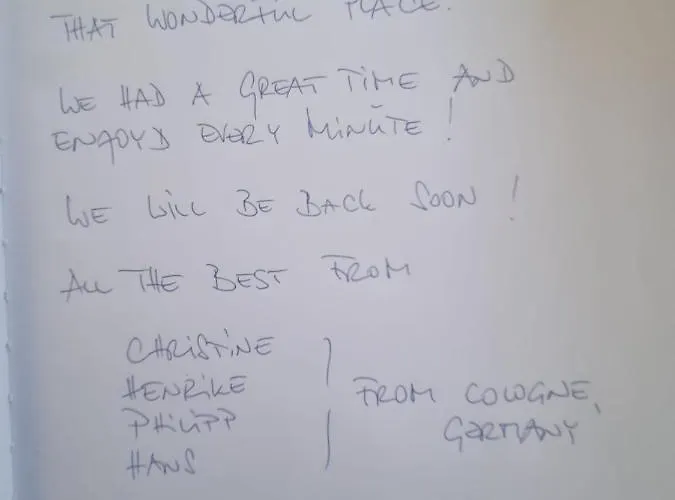 THAT WONDERFUL PLACE.
WE HAD A GREAT TIME AND
ENJOYD EVERY MINUTE!
WE WILL BE BACK SOON!
ALL THE BEST FROM
CHRISTINE
HENRIKE
PHILIPP
HANS
FROM COLOGNE,
GERMANY